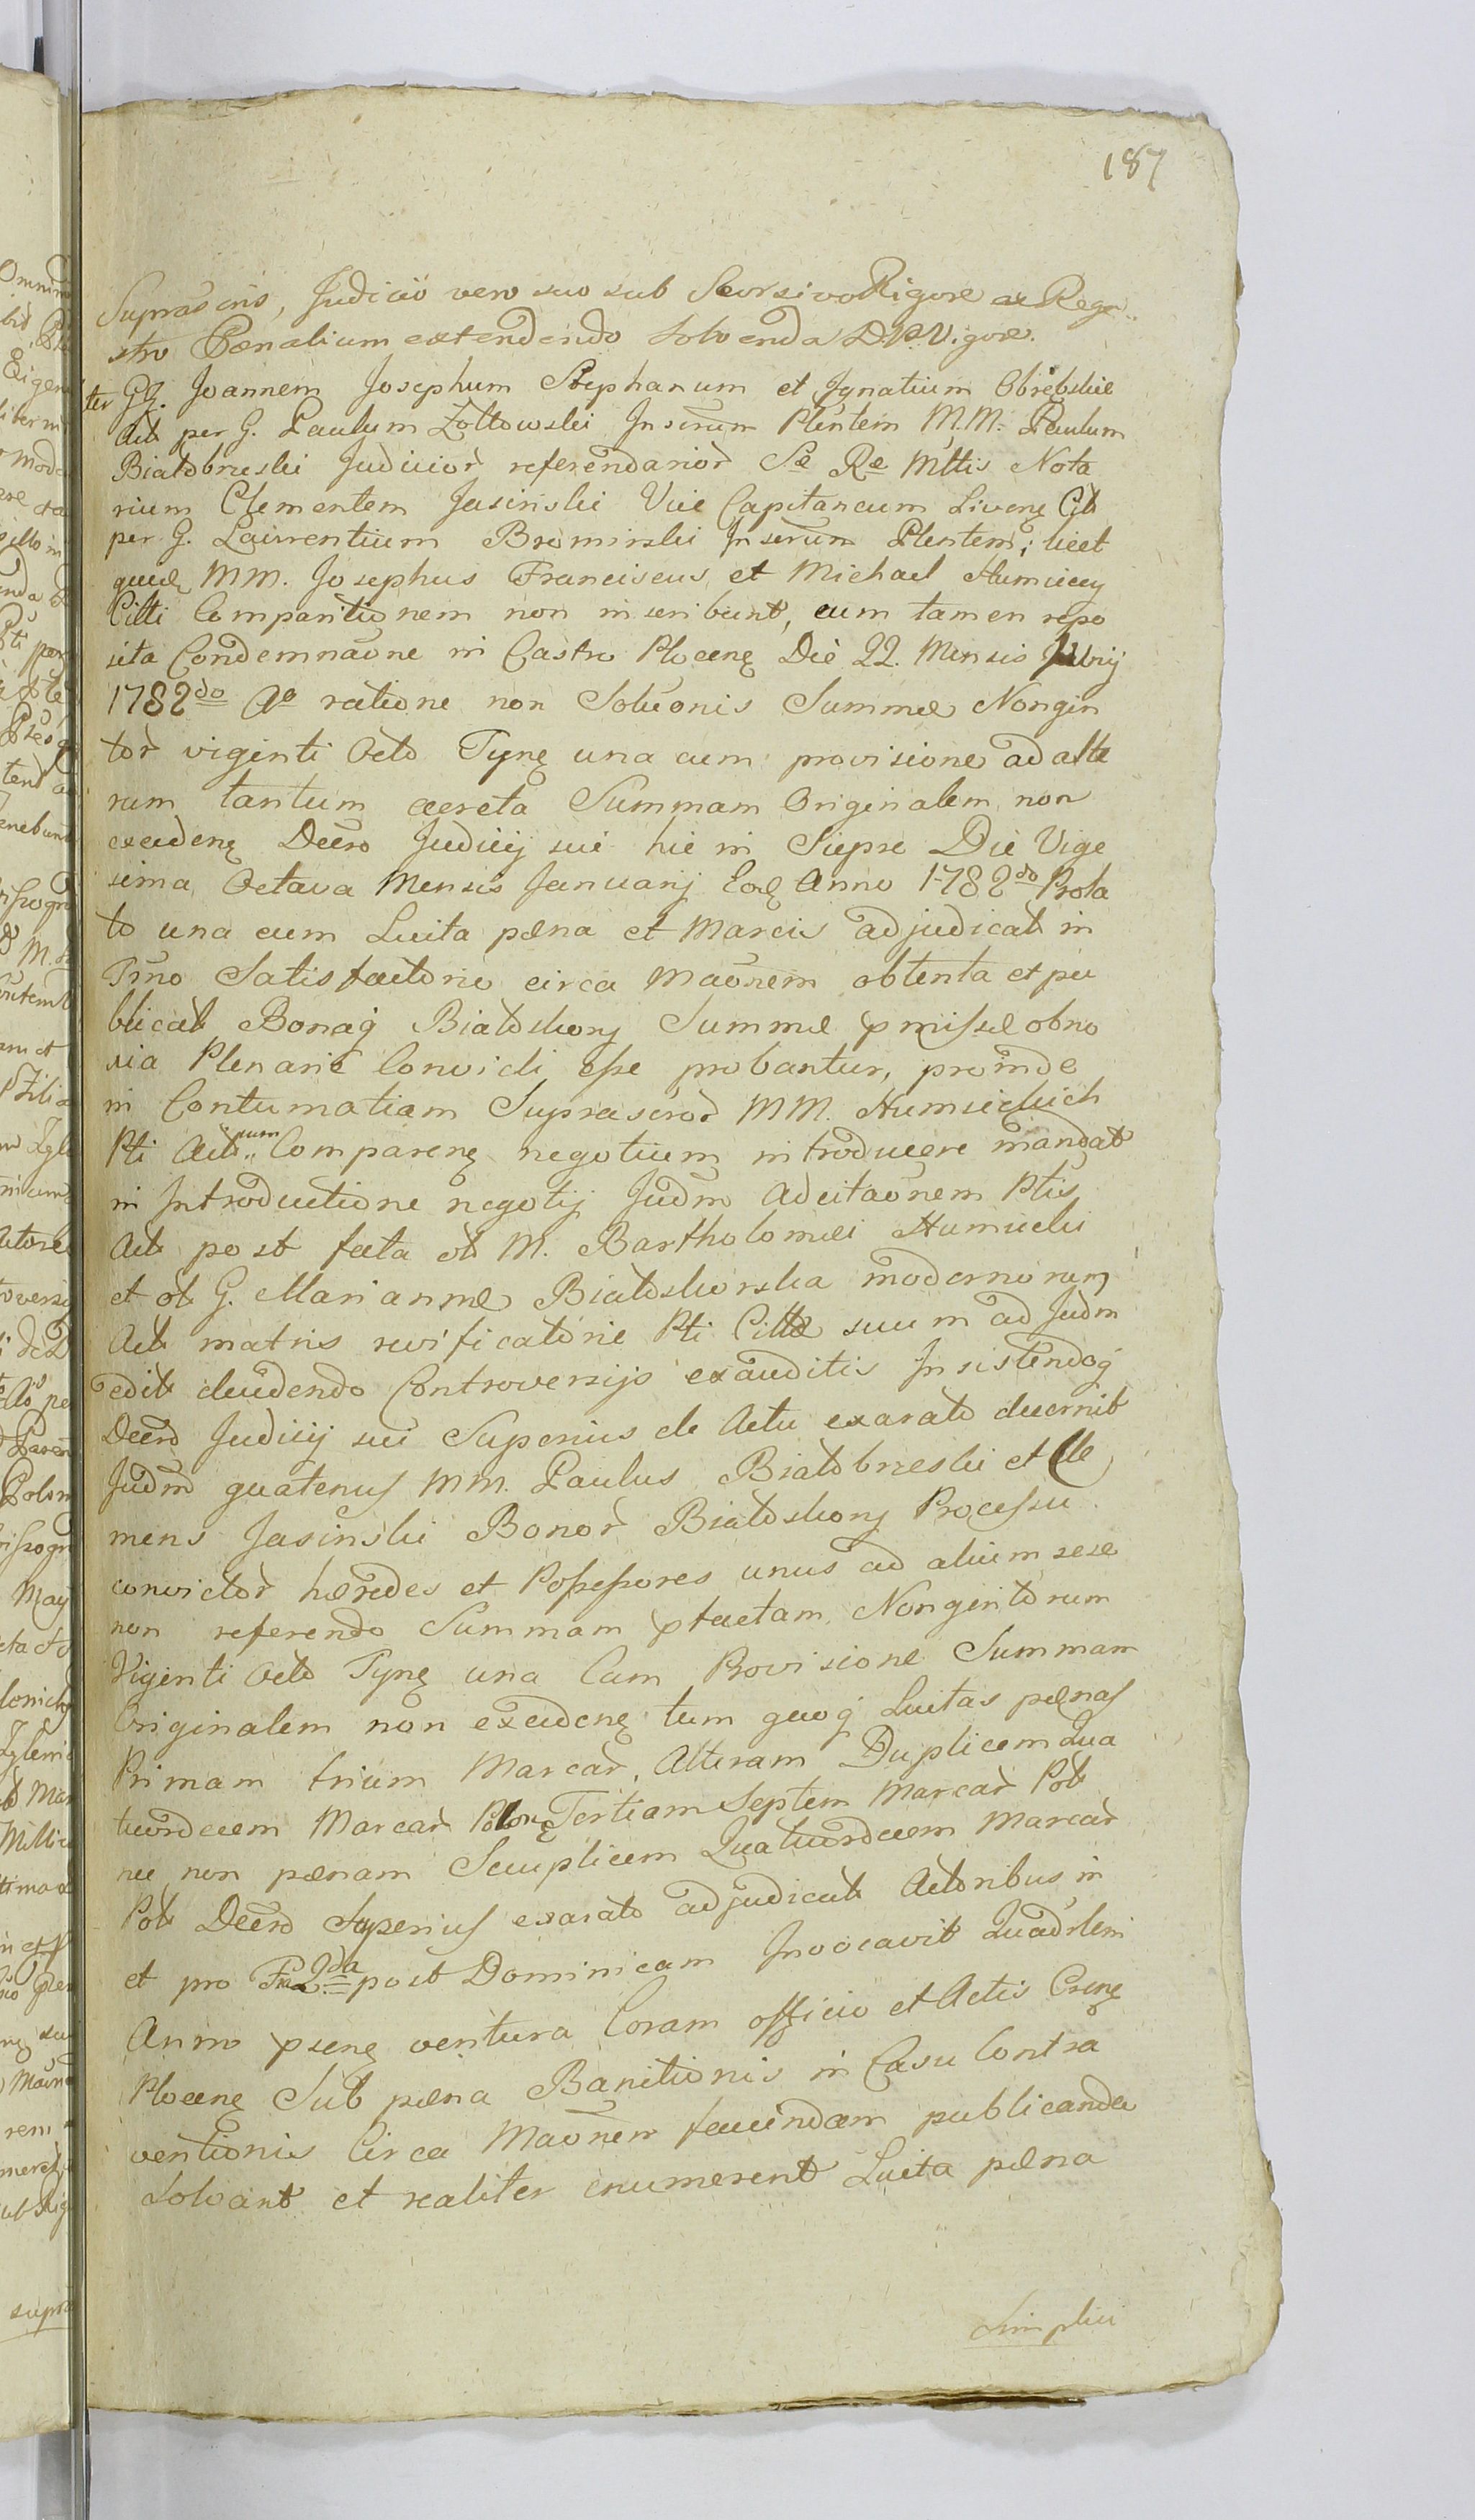 187
Suprascris, Judicio vero suo sub Seorsivo Rigore ex Regi„
stro Pœnalium extendendo solvenda D.P.Vigore.
ter GG. Joannem Josephum Stephanum et Ignatium Obrębskie
Act per G. Paulum Zołtowski Inserum Plentem M.M. Paulum
Białobrzeski Judicior referendarior Sæ Ræ Mttis Nota
rium Clementem Jasinski Vice Capitaneum Livenę Cit
per G. Laurentium Bromirski Inserum Plentem; licet
quid MM. Josephus Franciscus et Michael Humieccy
Citti Comparitionem non inscribunt, cum tamen repo
sita Condemnaõne in Castro Plocenę Die 22. Mensis
1782do Ao ratione non Soluõnis Summæ Nongin
tor viginti Octo Tynę una cum provisione ad alte
rum tantum accreta Summam Originalem non
excedenę Decro Judicij sui hic in Sieprc Die Vige
sima Octava Mensis Januarij Eod Anno 1782do Prola
to una cum Luita pæna et Marcis adjudicat in
Trno Satisfactorio circa Maõnem obtenta et pu
blicat Bonaq Białoskory Summæ pmissæ obno
xia Plenarie Convicti esse probantur, proinde
in Contumatiam Suprascror MM. Humieckich
Pti Act„ cum Comparenę negotium introducere mandat
in Introductione negotij Judm Adcitaõnem Ptis
Act post fata ol M. Bartholomei Humiecki
et ol G. Mariannæ Białoskorska modernorum
Act matris revificatorie Pti Cittæ suum ad Judm
edit cludendo Controversijs exauditis Insistendoq
Decro Judicij sui Superius de Actu exarato decernit
Judm quatenus MM. Paulus Białobrzeski et Cle
mens Jasinski Bonor Białoskory Processu
convictor hæredes et Possessores unus ad alium sese
non referendo Summam ptactam Nongintorum
Viginti Octo Tynę una Cum Provisione Summam
Originalem non excedenę tum quoq Luitas pænas
Primam trium Marcar, Alteram Duplicem Qua
tuordecem Marcar Polonę Tertiam Septem Marcar Pol
nec non pænam Sexuplicem Quatuordecem Marcar
Pol Decro Superius exarato adjudicat Actoribus in
et pro Fria 2da post Dominicam Invocavit Quadrleni
Anno psenę ventura Coram officio et Actis Csenę
Plocenę Sub pæna Banitionis in Casu Contra
ventionis Circa Maõnem faciendam publicanda
Solvant et realiter enumerent Luita pæna
simplici